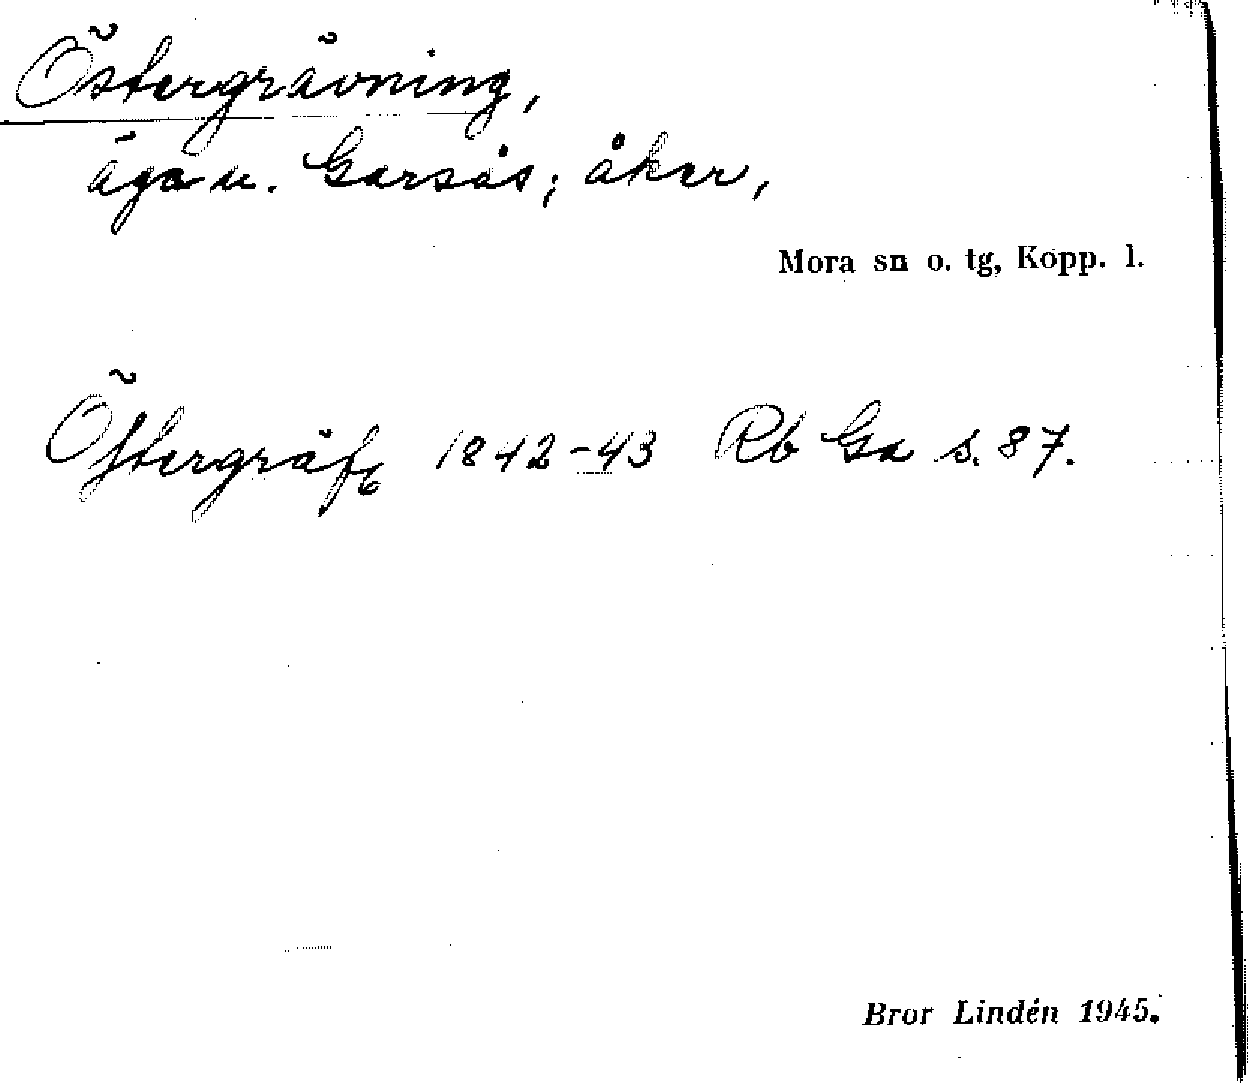 Östergrävning,
äga u. Garsås; åker,
Mora sn o. tg, Kopp. l.
Östergräfg 1842-43 Rb Ga s. 87.
Bror Lindén 1945.